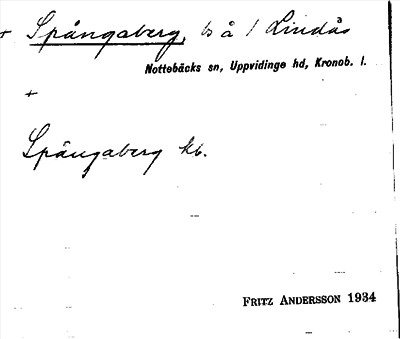 + Spångaberg, ls å 1 Lindås
Nottebäcks sn, Uppvidinge hd, Kronob. l.
+
Spångaberg kb.
FRITZ ANDERSSON 1934